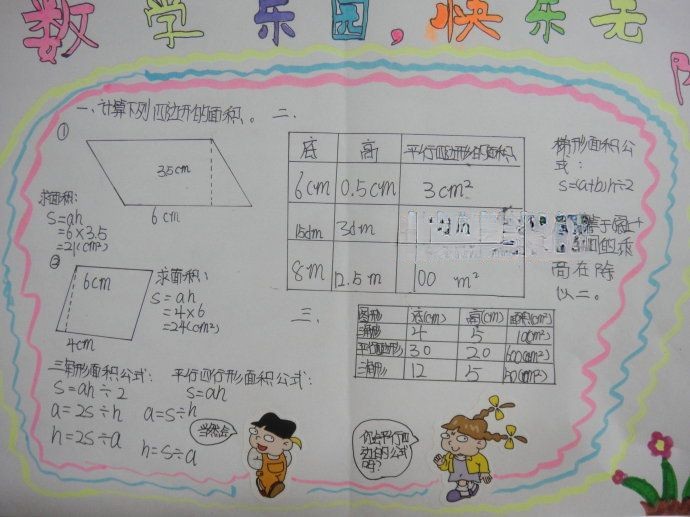 数学乐园,快乐无
一、计算下列四边形的面积。
①
3.5cm
6cm
求面积:
S=ah
=6×3.5
=21(cm²)
②
6cm
4cm
求面积:
S=ah
=4×6
=24(cm²)
三角形面积公式:
S=ah÷2
a=2s÷h
h=2s÷a
平行四行形面积公式:
S=ah
a=s÷h
h=s÷a
二、
底 高 平行四边形的面积
6cm 0.5cm 3cm²
15dm 3dm
8m 12.5m 100 m²
梯形面积公
式:
S=(a+b)h÷2
高在除
以二。
三、
图形 底(cm) 高(cm) 面积(cm²)
三角形 4 5 10(cm²)
平行四边形 30 20 600(cm²)
三角形 12 5 (cm²)
当然会
你会平行四
边的公式
吗?